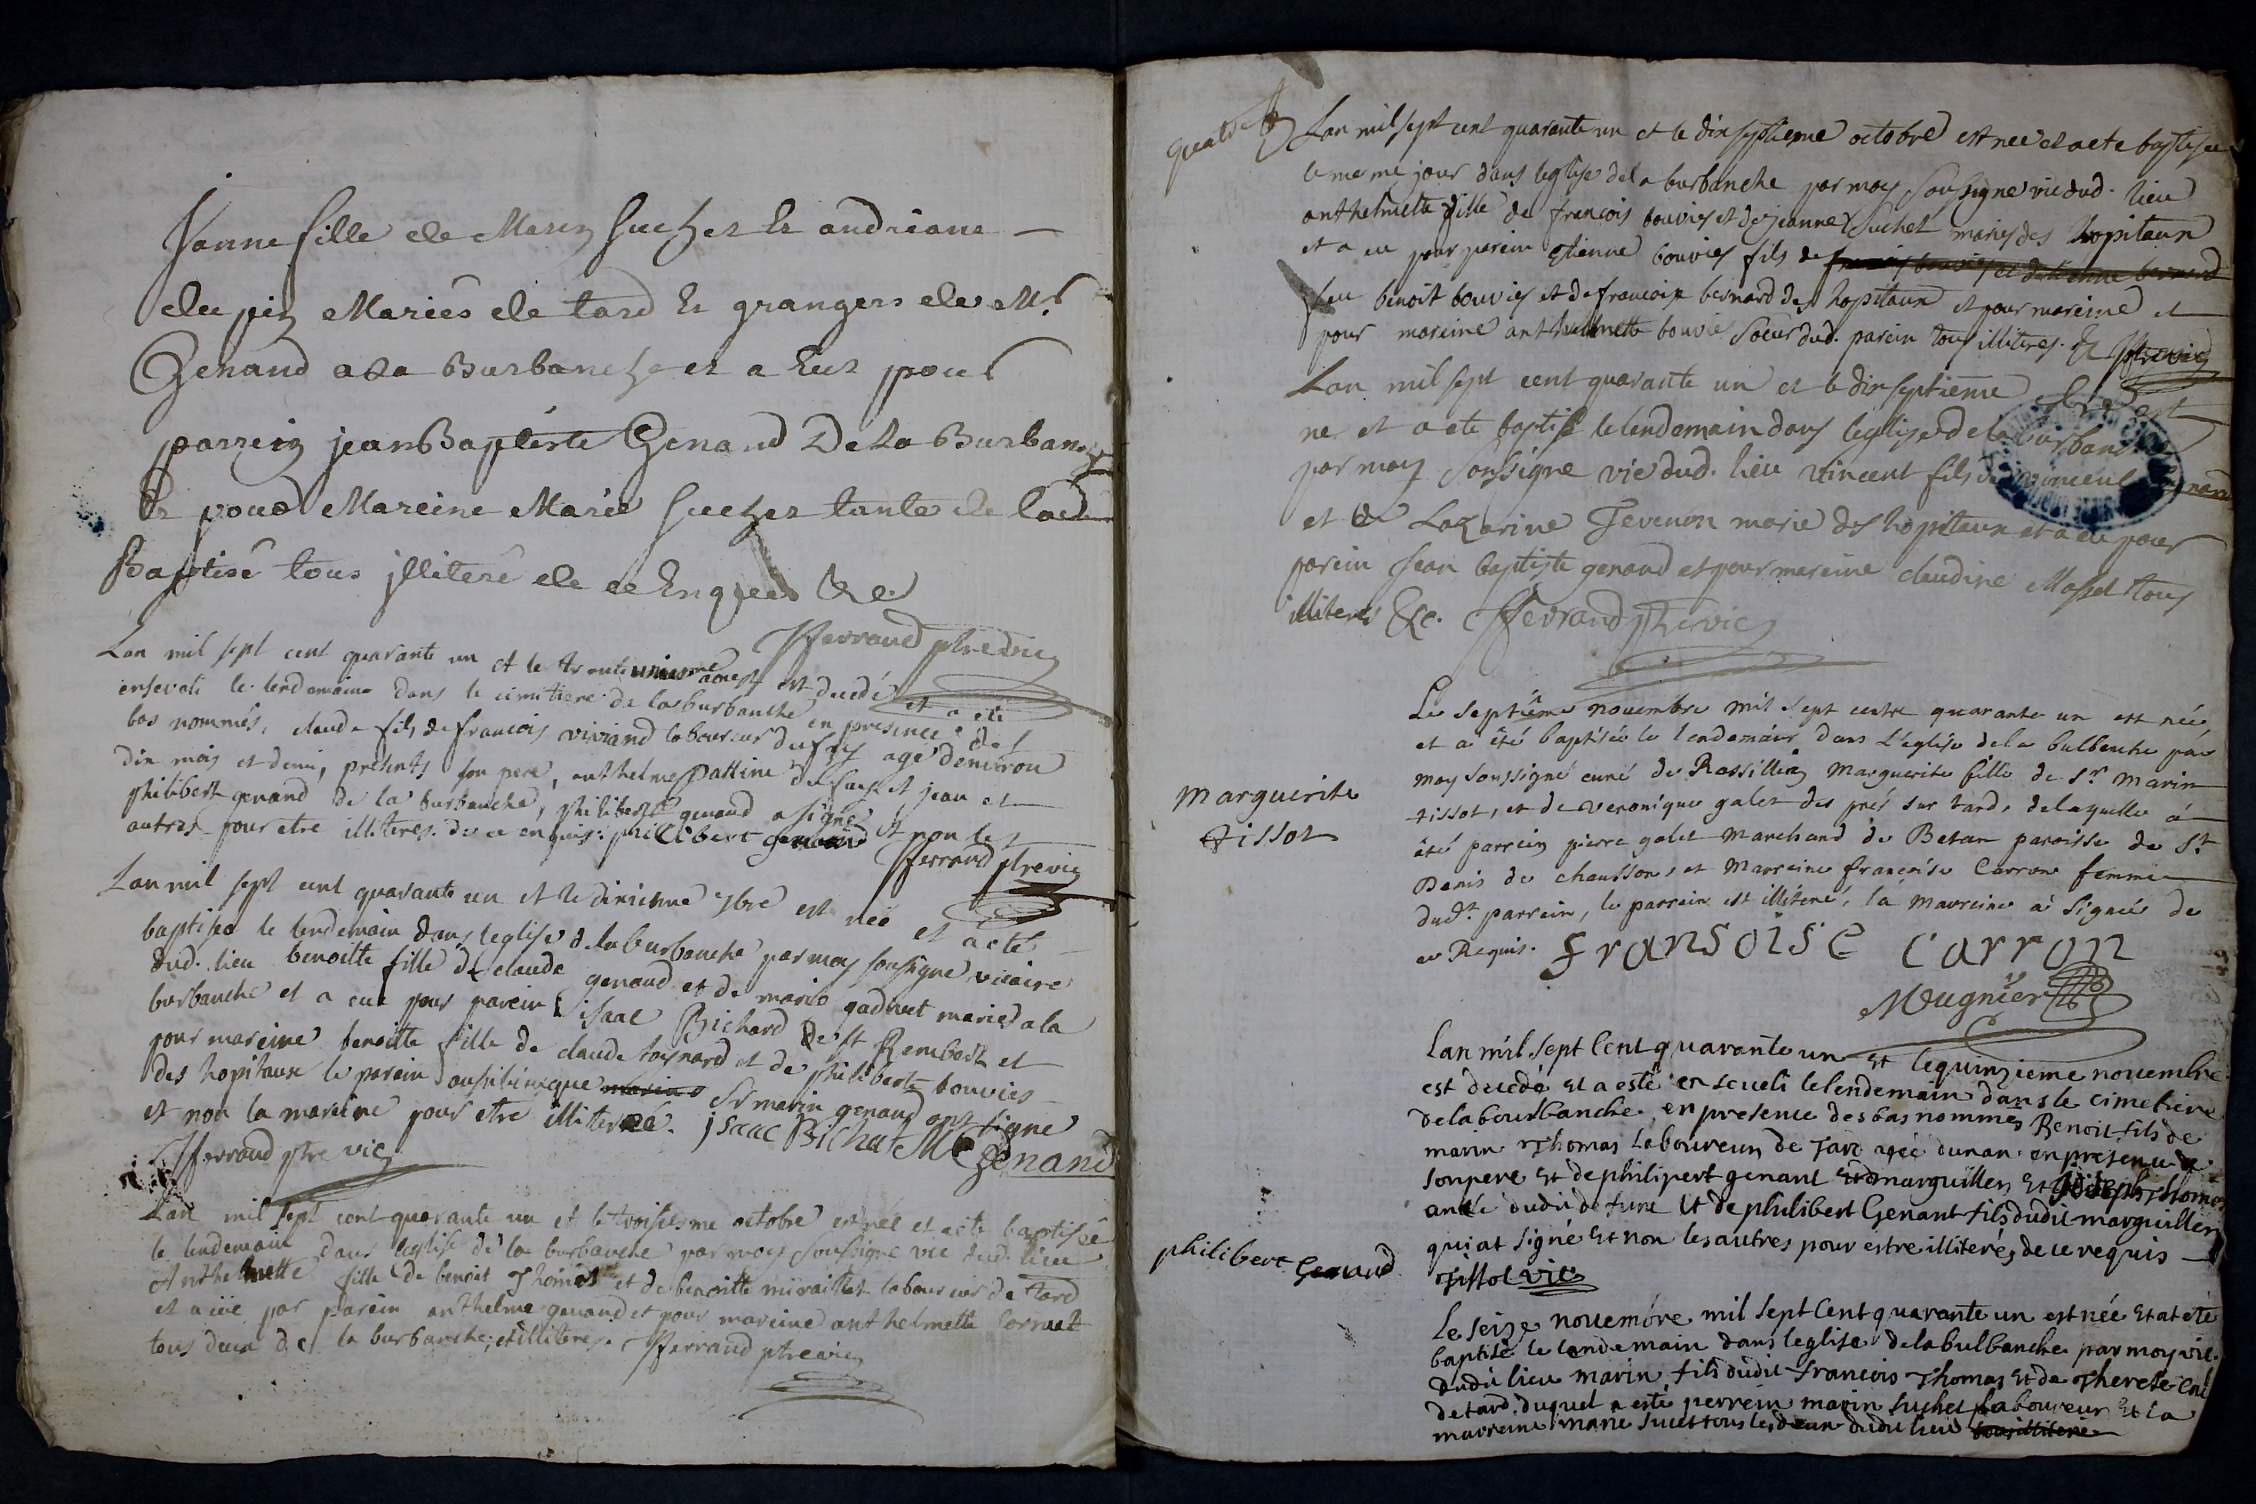 Janne fille de Marin Suchet Et andriane
du pin Mariés de tard Et grangers de Mr.
Genand a La Burbanche et a Eut pour
parrein jean Baptiste Genand De La Burbanche
Et pour Mareine Marie Suchet tante de lad
Baptisé tous jlliteré de ce Enquis &c
fferrand ptre vic
Lan mil sept cent quarante un et le trente unieme aoust est decedé et a eté
enseveli le lendemain dans le cimitiere de la burbanche en presence des
bas nommés, claude fils de francois viviand laboureur du fays agé denviron
dix mois et demi, presents son pere, anthelme pattine du fays et jean et
philibert genand de la burbanche, philibert genand a signé et non les
autres pour etre illiteres de ce enquis: philibert genand
fferrand ptre vic
Lan mil sept cent quarante un et le dixieme 7bre est née et a eté
baptisée le lendemain dans leglise de la burbanche par moy soussigné vicaire
dud. lieu benoitte fille de claude genand et de marie gadout maried a la
burbanche et a eue pour parein isaac Bichard de st Rembert et
pour mareine benoitte fille de claude et de philiberte bouvier
des hopitaux le parein aussibienque Sr marin genand ont signé
et non la mareine pour etre illiterée. jsaac Bichat M Genand
fferrand ptre vic
Lan mil sept cent quarante un et le troisiesme octobre est née et a ete baptisée
le lendemain dans leglise de la burbanche par moy soussigné vic dud. lieu
Anthelmette fille de benoit Thomas et de benoitte miraillet laboureur de Tard
et a eüe par parein anthelme genand et pour mareine anthelmette Cornet
tous deux de la burbanche, et illiteres. fferrand ptre vic
Lan mil sept cent quarante un et le dix septieme octobre est née et a ete baptisée
le meme jour dans leglise de la burbanche par moy soussigné vic dud. lieu
anthelmette fille de francois bouvier et de jeanne Suchet mariés des hopitaux
et a eu pour parein etienne bouvier fils de
feu benoit bouvier et de francoise bernard des hopitaux et pour mareine et
pour mareine anthelmette bouvie soeur dud. parein tous illiteres. &c fferrand
Lan mil sept cent quarante un et le dix septieme 8bre est
né et a ete baptisé le lendemain dans leglise de la burbanche
par moy soussigné vic dud. lieu vincent fils de vincent genand
et de Lazarine Tevenon marie des hopitaux et a eu pour
parein jean baptiste genand et pour mareine claudine Mosset tous
illiteres &c. fferrand ptre vic
Marguerite
tissot
Le septiême novembre mil sept cents quarante un est née
et a êté baptisée le lendemain dans L'eglise de la bulbanche par
moy soussigné curé de Rossillin marguerite fille de sr. marin
tissot, et de veronique galet des prés sur tard, de laquelle á
êté parrein pierre galet marchand de Betan paroisse de St.
Denis de chausson, et marreine françoise Carron femme
dud.t parrein, le parrein est illiteré, la marreine a signée de
ce Requis. fransoise carron
Mugnier
Lan mil sept Cent quarante un et le quinzieme novembre
est decedé et a esté enseueli le lendemain dans le cimetiere
de la bourbanche en presence des bas nommés Benoit fils de
marin Thomas laboureur de Tart agé dun an en presence de
son pere et de philipert genant marguillier et joseph Thomas
du dit defunt et de philibert Genant fils dudit marguillier
qui at signé et non les autres pour estre illiterés de ce requis
philibert Genand
Tissot vic
Le seize novembre mil sept Cent quarante un est née et at eté
baptisé le lendemain dans leglise de la bulbanche par moy vic.
dudit lieu marin fils dudit francois Thomas et de Therese
de tard, duquel a esté perrein marin suchet laboureur et la
marreine marie sucet tous les deux dudit lieu